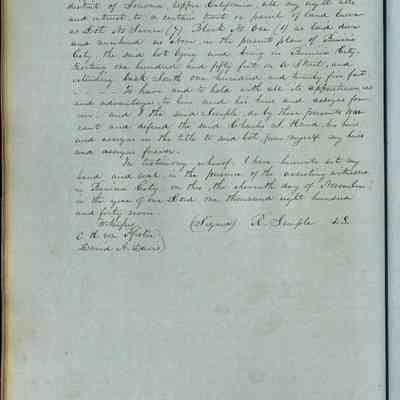 district of Sonoma Upper California, all my right title
and interest to a certain tract or parcel of land known
as Lot No Seven (7) Block No One (1) as laid down
and numbered as shown in the present plan of Benicia
City, the said lot lying and being in Benicia City.
fronting one hundred and fifty feet on A Street, and
extending back South one hundred and twenty five feet
to have and to hold with all its appurtenances
and advantages to him and his heirs and assigns for-
ever. and I the said Semple, do by these presents war-
rant and defend the said Charles H. his heirs
and assigns in the title to said lot from myself my heirs
and assigns forever.
In testimony whereof I have hereunto set my
hand and seal in the presence of the attesting witnesses
in Benicia City on this the eleventh day of November
in the year of our Lord one thousand eight hundred
and forty seven.
Witness
(Signed) R. Semple L.S.
David A. Davis